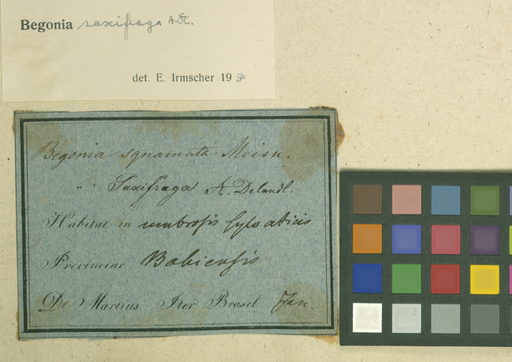 Begonia saxifraga A.DC.
det. E. Irmscher 19
Begonia squamata Meisn.
" Saxifraga A. Decandl.
Habitat in umbrosis sylvaticis
Provinciae Bahiensis
Dr Martius Iter Brasil. Jan.